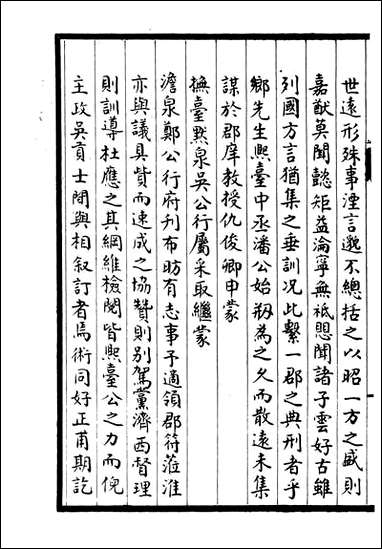 世遠形殊事湮言邈不總括之以昭一方之盛則
嘉猷莫聞懿矩益淪寧無祗愳聞諸子雲好古雖
列國方言猶集之垂訓况此繫一郡之典刑者乎
鄉先生熙臺中丞潘公始剏為之久而散遠未集
謀於郡庠教授仇俊卿申蒙
撫臺默泉吳公行屬采取繼蒙
澹泉鄭公行府刋布昉有志事予適領郡符蒞淮
亦與議具貲而速成之協贊則别駕黨濟西督理
則訓導杜應之其綱維檢閱皆熙臺公之力而倪
主政吳貢士閒與相叙訂者焉術同好正甫期訖